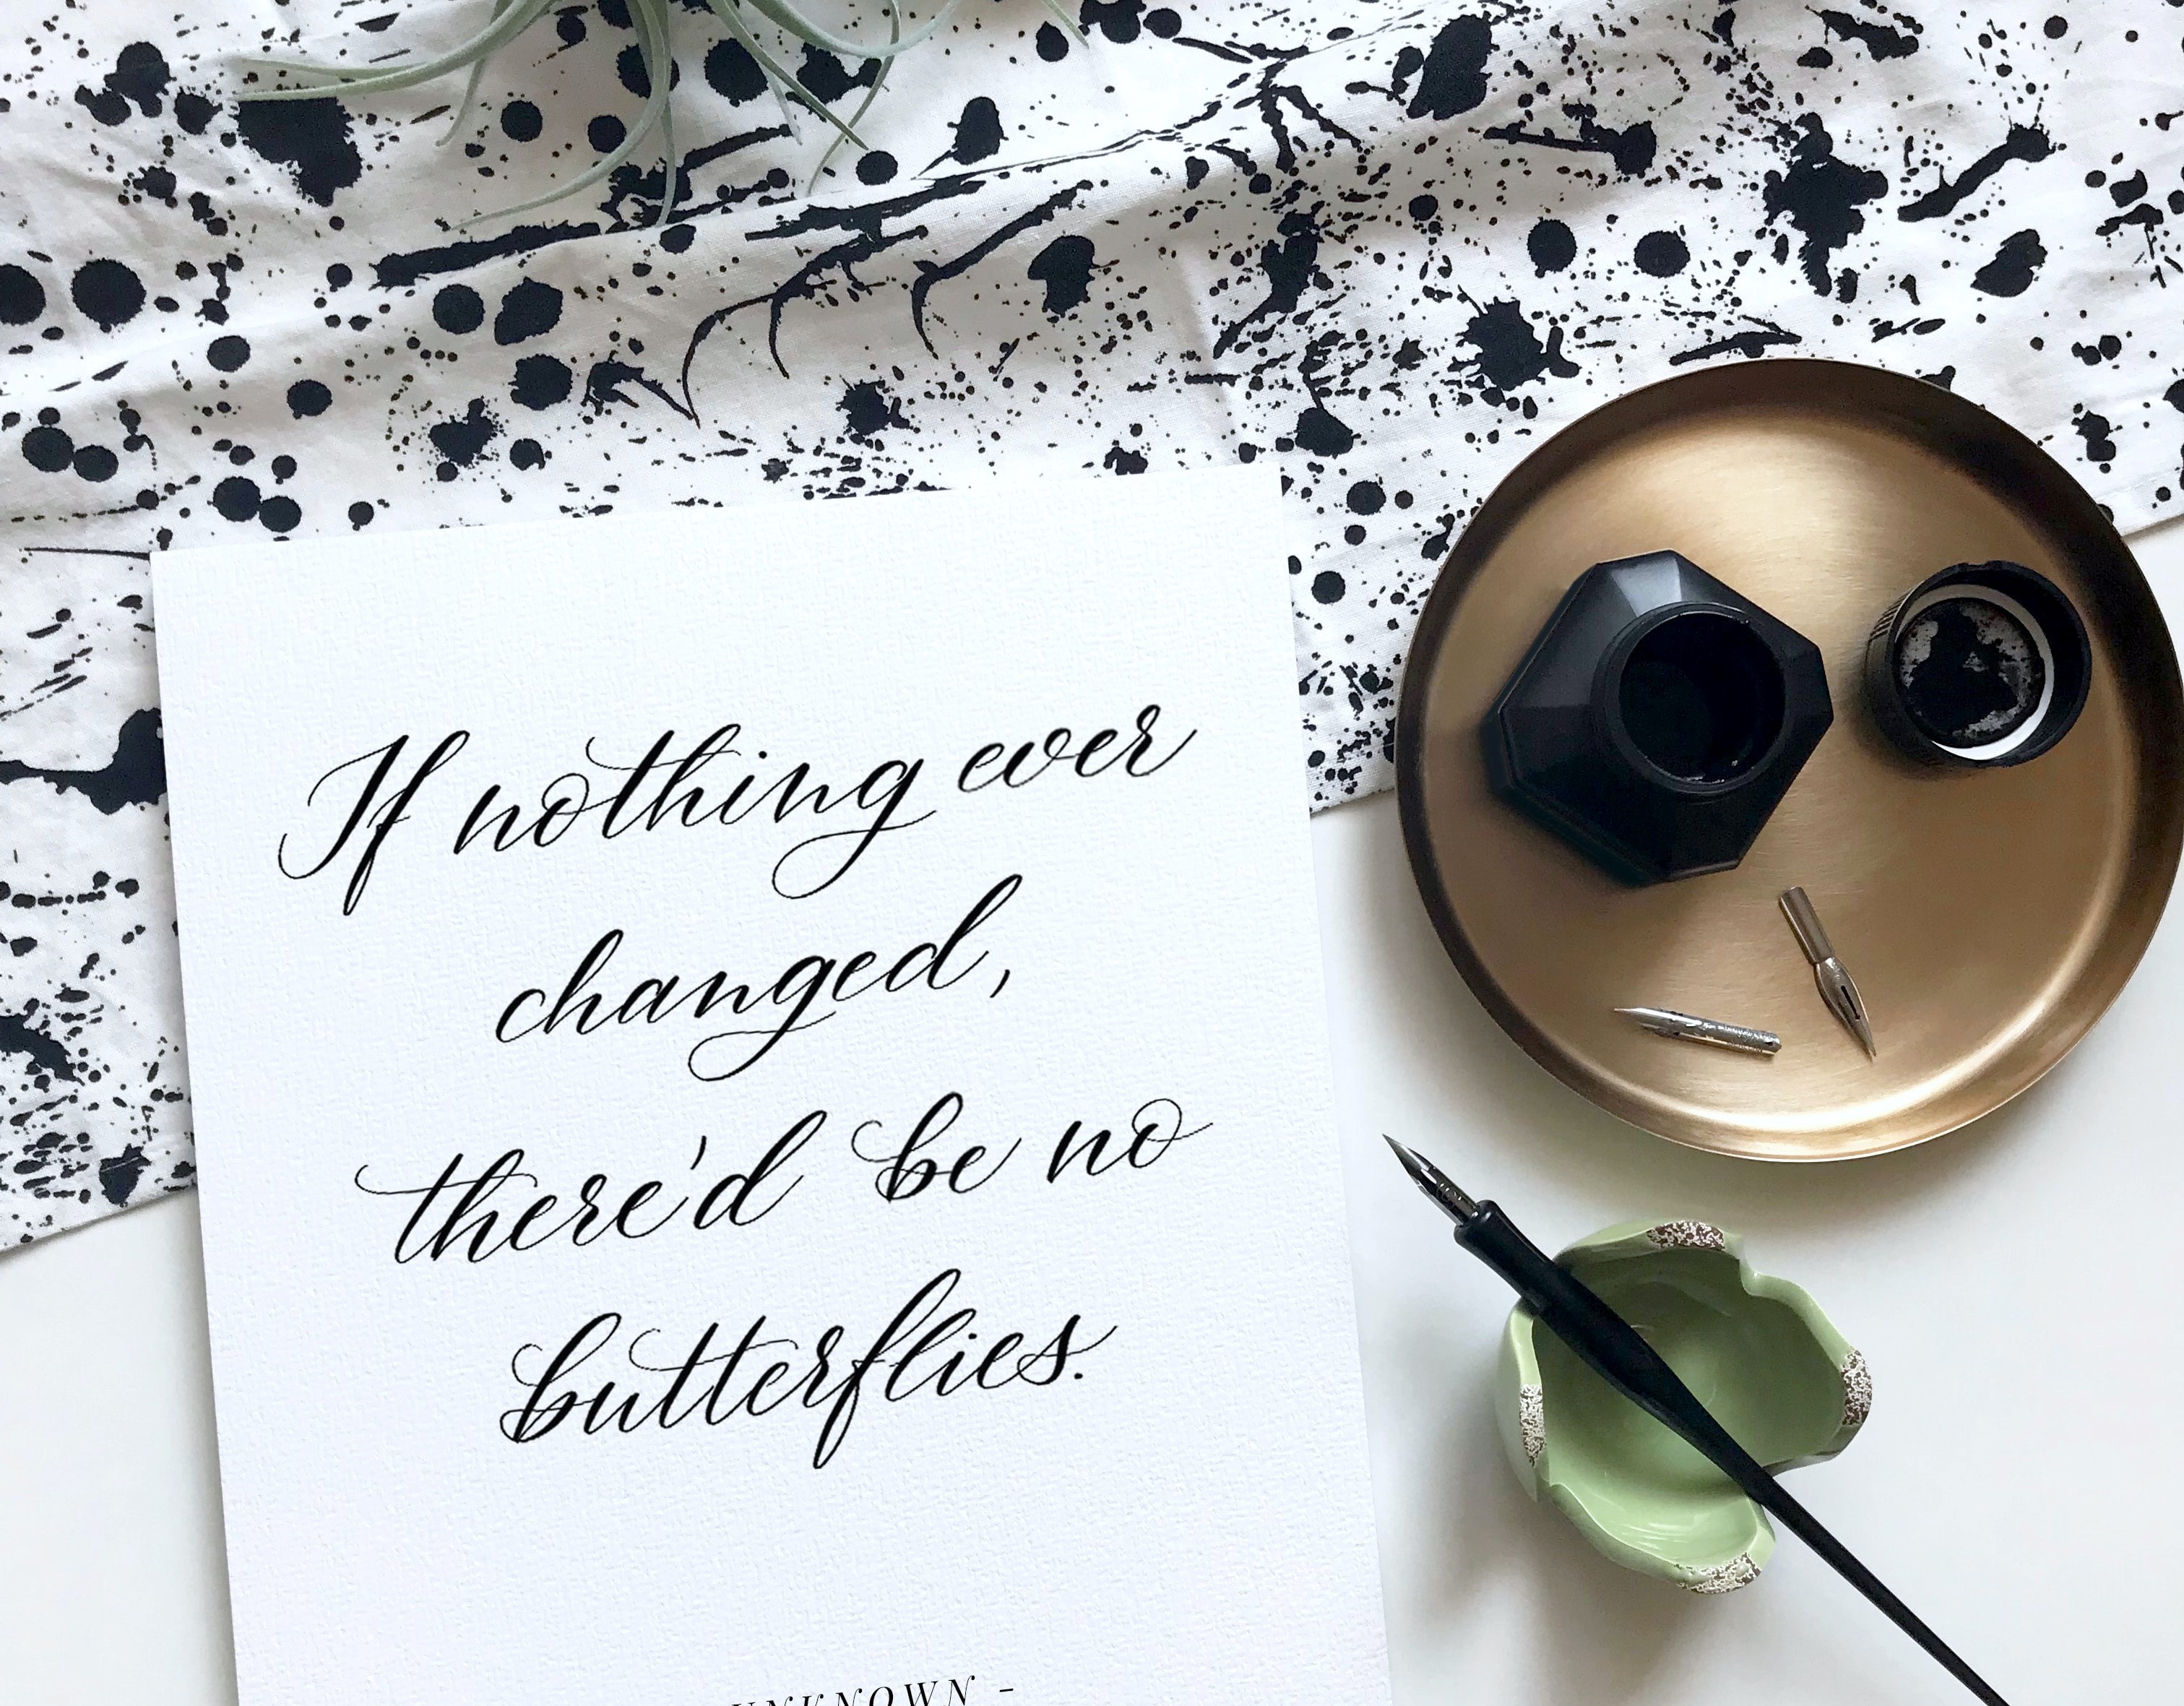 If nothing ever
changed,
there'd be no
butterflies.
UNKNOWN -